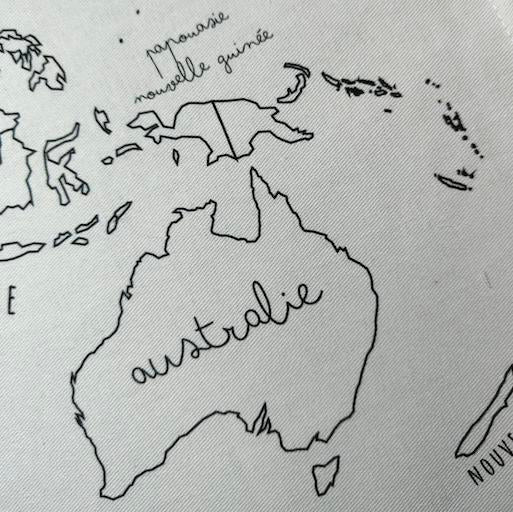 papouasie
nouvelle guinée
E
australie
NOUV